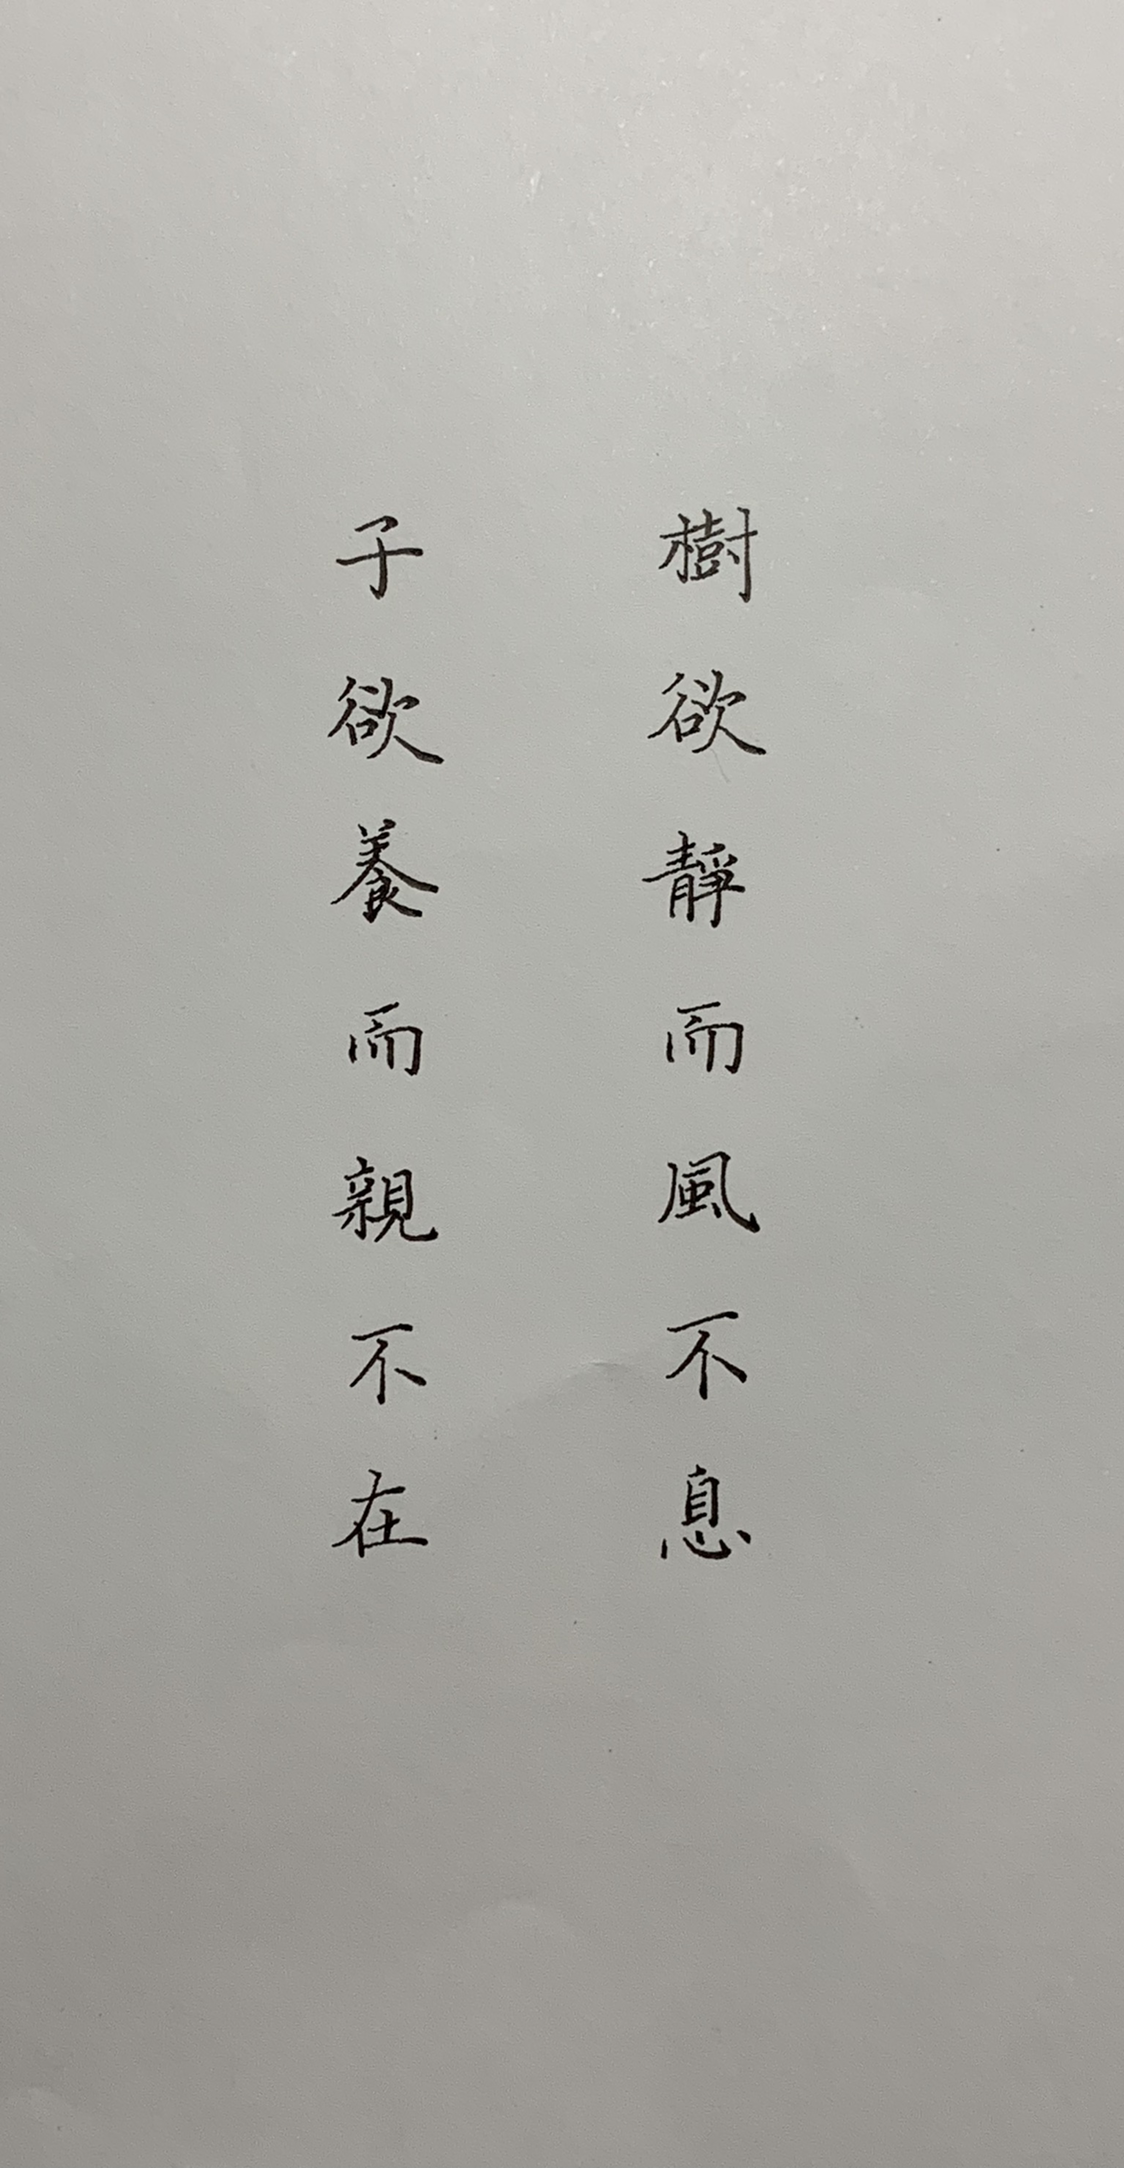 樹欲靜而風不息
子欲養而親不在